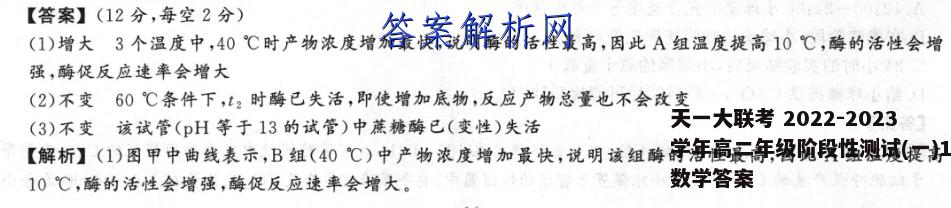 【答案】(12分,每空2分)
(1)增大 3个温度中,40 ℃时产物浓度增加最快,说明酶的活性最高,因此A组温度提高10 ℃,酶的活性会增
强,酶促反应速率会增大
(2)不变 60 ℃条件下,t₂ 时酶已失活,即使增加底物,反应产物总量也不会改变
(3)不变 该试管(pH等于13的试管)中蔗糖酶已(变性)失活
【解析】(1)图甲中曲线表示,B组(40 ℃)中产物浓度增加最快,说明该组酶的活性最高
10 ℃,酶的活性会增强,酶促反应速率会增大。
答案解析网
天一大联考 2022-2023
学年高二年级阶段性测试(一)1
数学答案